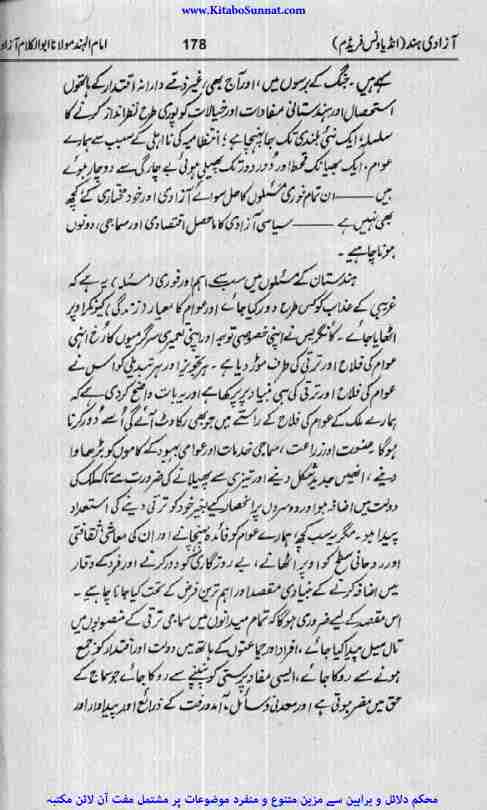 www.KitaboSunnat.com
آزادی ہند (انڈیا ونس فریڈم) 178 امام الہند مولانا ابوالکلام آزاد
کیے ہیں۔ جنگ کے برسوں میں، اور آج بھی، غیر ذمّے دارانہ اقتدار کے ہاتھوں
استحصال اور ہندستانی مفادات اور خیالات کو پوری طرح نظر انداز کرنے کا
سلسلہ، ایک نئی بلندی تک جا پہنچا ہے؛ انتظامیہ کی نااہلی کے سبب سے ہمارے
عوام، ایک بھیانک قحط اور دُور دُور تک پھیلی ہوئی بے چارگی سے دوچار ہوئے
ہیں ——— ان تمام فوری مسئلوں کا حل سوائے آزادی اور خود مختاری کے کچھ
بھی نہیں ہے ——— سیاسی آزادی کا ماحصل اقتصادی اور سماجی، دونوں
ہونا چاہیے۔
ہندستان کے مسئلوں میں سب سے اہم اور فوری (مسئلہ) یہ ہے کہ
غریبی کے عذاب کو کس طرح دور کیا جائے اور عوام کا معیار (زندگی) کیونکر اوپر
اٹھایا جائے۔ کانگریس نے اپنی خصوصی توجہ اور اپنی تعمیری سرگرمیوں کا رُخ انہی
عوام کی فلاح اور ترقی کی طرف موڑ دیا ہے۔ ہر تجویز اور ہر تبدیلی کو اس نے
عوام کی فلاح اور ترقی کی ہی بنیاد پر پرکھا ہے اور یہ بات واضح کر دی ہے کہ
ہمارے ملک کے عوام کی فلاح کے راستے میں جو بھی رکاوٹ آئے گی اُسے دُور کرنا
ہوگا۔ صنعت اور زراعت، سماجی خدمات اور عوامی بہبود کے کاموں کو بڑھاوا
دینے، انھیں جدید شکل دینے اور تیزی سے پھیلانے کی ضرورت ہے تاکہ ملک کی
دولت میں اضافہ ہو اور دوسروں پر انحصار کیے بغیر خود کو ترقی دینے کی استعداد
پیدا ہو۔ مگر یہ سب کچھ، ہمارے عوام کو فائدہ پہنچانے اور ان کی معاشی ثقافتی
اور روحانی سطح کو اوپر اٹھانے، بے روزگاری کو دور کرنے اور فرد کے وقار
میں اضافہ کرنے کے بنیادی مقصد اور اہم ترین فرض کے تحت کیا جانا چاہیے۔
اس مقصد کے لیے ضروری ہوگا کہ تمام میدانوں میں سماجی ترقی کے منصوبوں میں
تال میل پیدا کیا جائے، افراد اور جماعتوں کے ہاتھ میں دولت اور اقتدار کو جمع
ہونے سے روکا جائے، ایسی مفاد پرستی کو پنپنے سے روکا جائے جو سماج کے
حق میں مضر ہوتی ہے اور معدنی وسائل، آمد ورفت کے ذرائع اور پیداوار اور
محکم دلائل و براہین سے مزین متنوع و منفرد موضوعات پر مشتمل مفت آن لائن مکتبہ